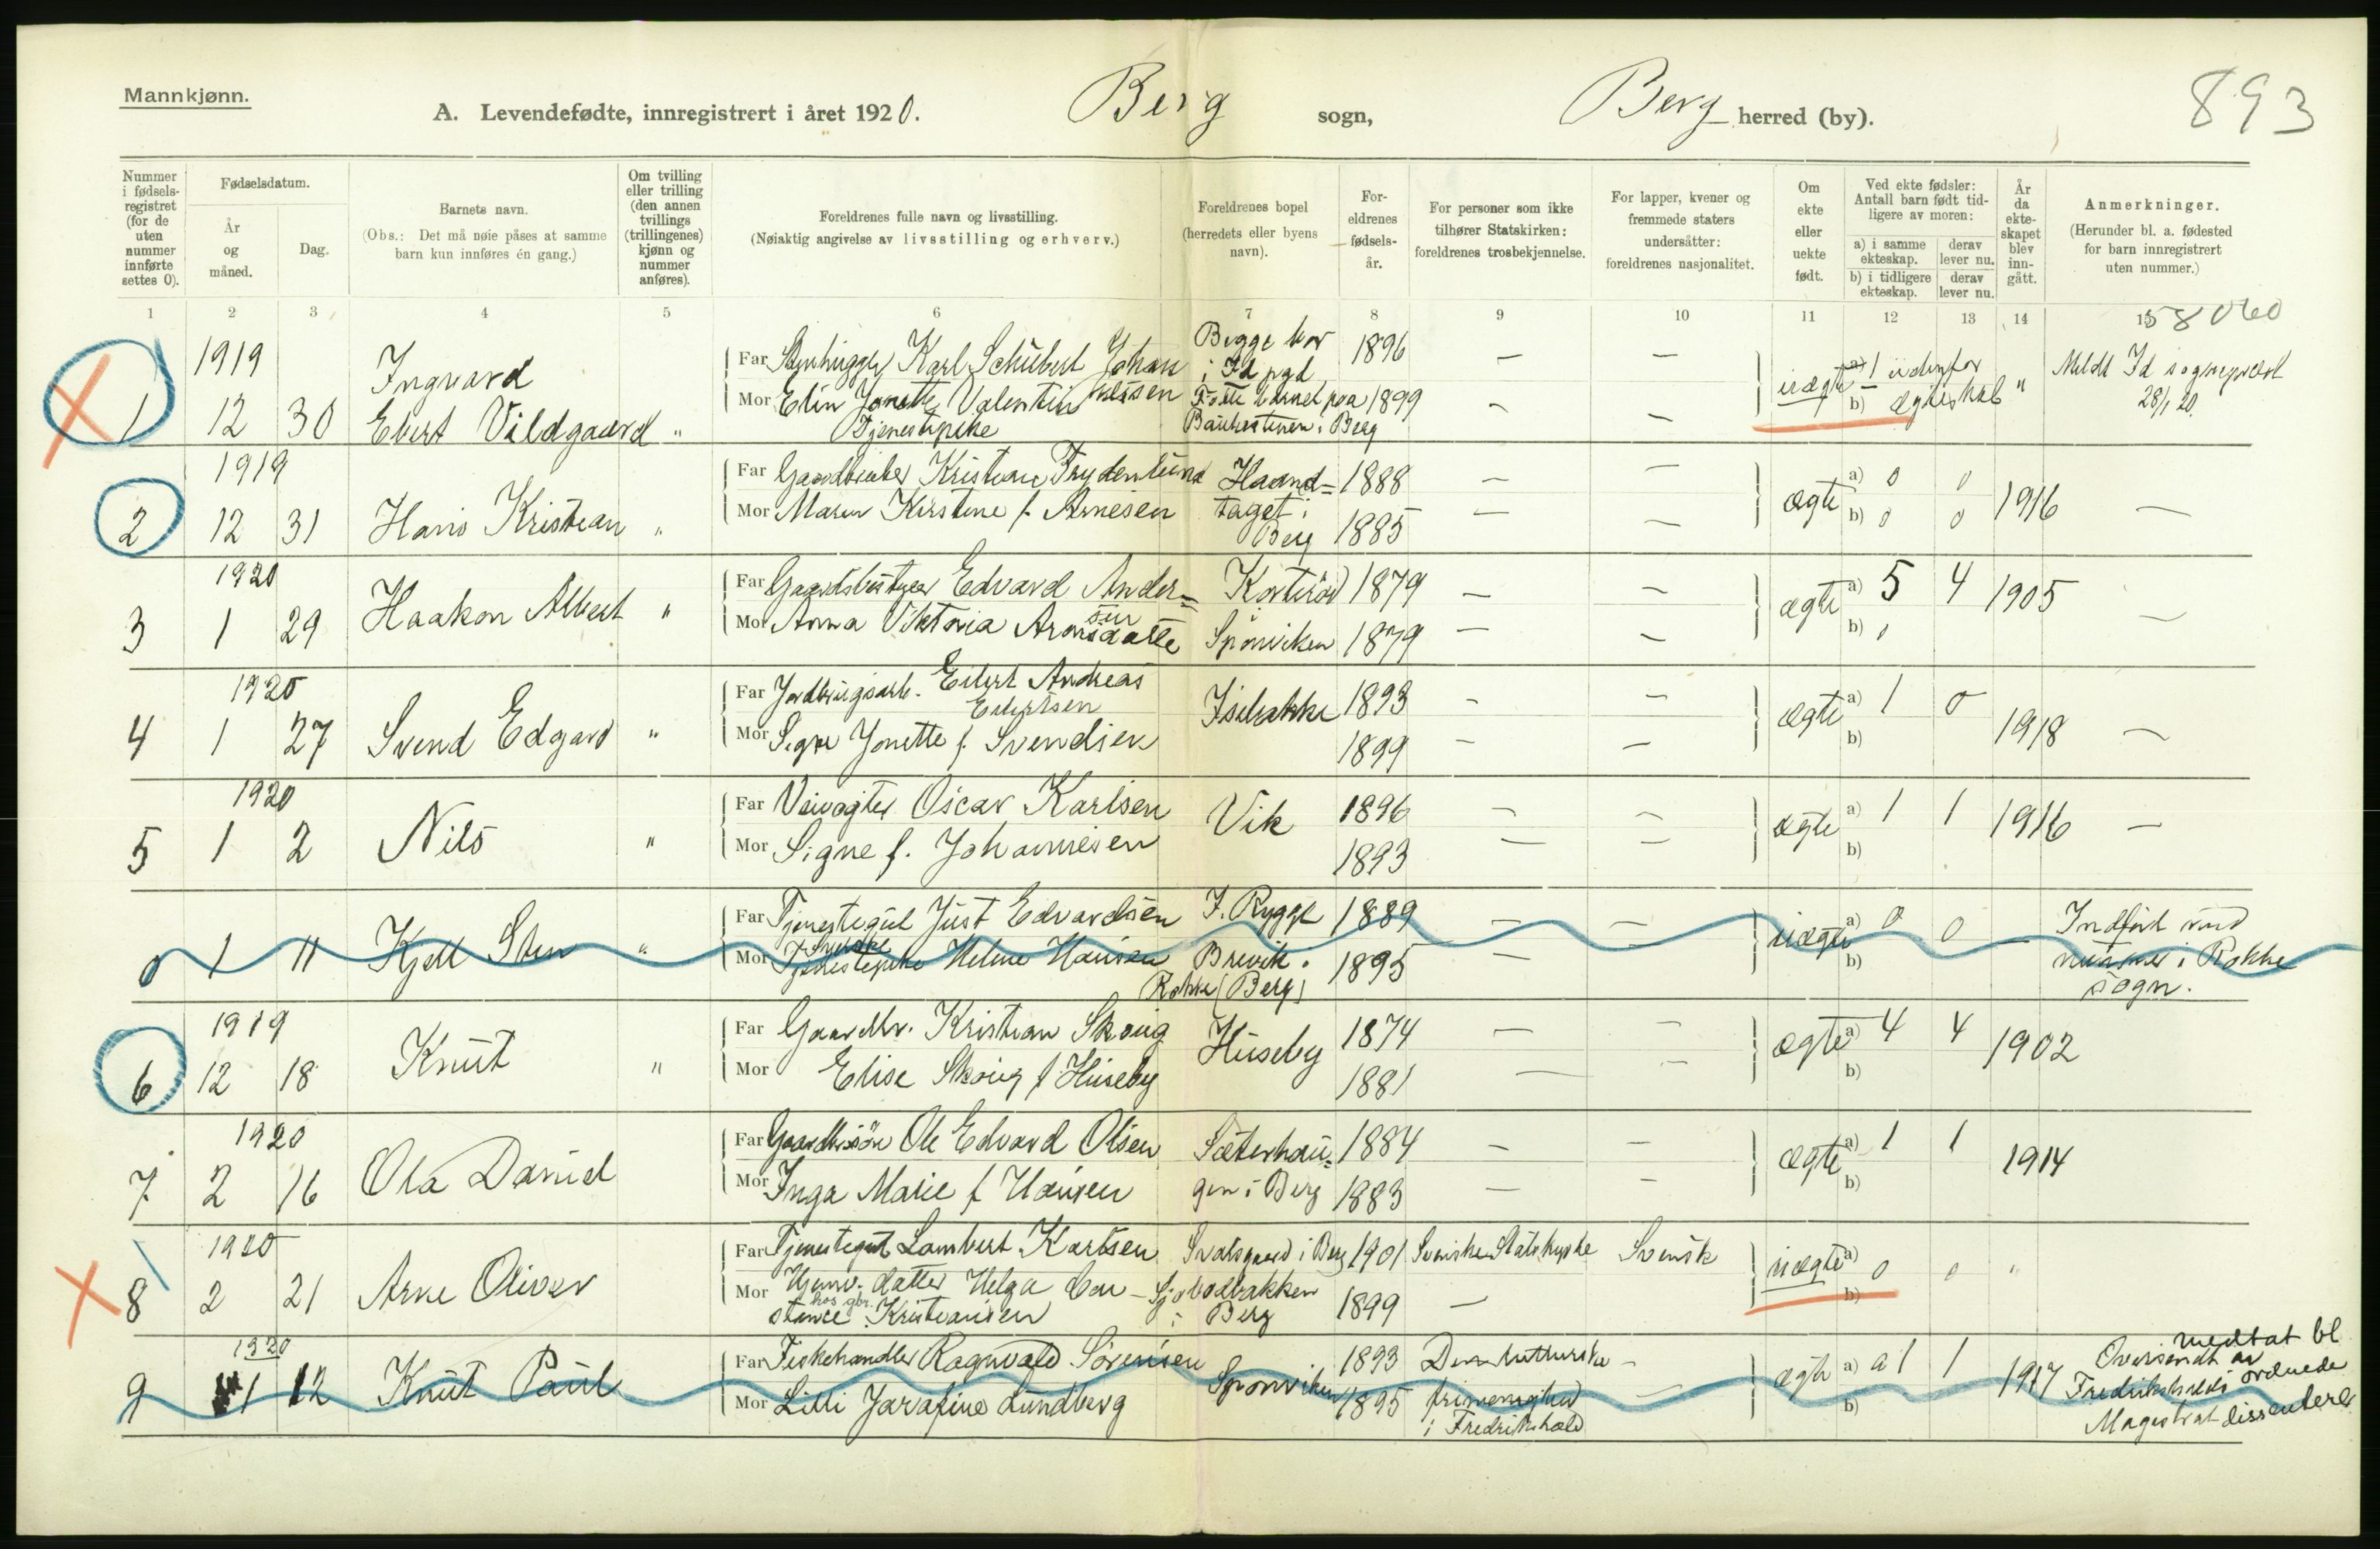 Mannkjønn.
A. Levendefødte, innregistrert i året 1920. Berg sogn, Berg herred (by). 893
Nummer i fødsels-registret (for de uten nummer innførte settes 0).
Fødselsdatum.
År og måned.
Dag.
Barnets navn.
(Obs.: Det må nøie påses at samme barn kun innføres én gang.)
Om tvilling eller trilling (den annen tvillings (trillingenes) kjønn og nummer anføres).
Foreldrenes fulle navn og livsstilling.
(Nøiaktig angivelse av livsstilling og erhverv.)
Foreldrenes bopel (herredets eller byens navn).
For-eldrenes fødsels-år.
For personer som ikke tilhører Statskirken: foreldrenes trosbekjennelse.
For lapper, kvener og fremmede staters undersåtter: foreldrenes nasjonalitet.
Om ekte eller uekte født.
Ved ekte fødsler: Antall barn født tid-ligere av moren:
a) i samme ekteskap. derav lever nu.
b) i tidligere ekteskap. derav lever nu.
År da ekte-skapet blev inn-gått.
Anmerkninger.
(Herunder bl. a. fødested for barn innregistrert uten nummer.)
1 2 3 4 5 6 7 8 9 10 11 12 13 14 15
58060
1 1919 12 30 Ingvard Ebert Vildgaard "
Far Stenhugger Karl Schubert Johan Nilsen Begge bor i Id pgd 1896 — —
Mor Elin Jonette Valentin Tjenestepike Født barnet paa Bautestenen i Berg 1899 — —
uægte a) 1 udenfor b) ægteskab " Meldt Id sogneprest 28/1 20.
2 1919 12 31 Hans Kristian "
Far Gaardbruker Kristian Frydenlund Haand= 1888 — —
Mor Maren Kirstine f. Arnesen taget i Berg 1885 — —
ægte a) 0 0 b) 0 0 1916 —
3 1920 1 29 Haakon Albert "
Far Gaardsbestyrer Edvard Ander=sen 1879 — —
Mor Anna Viktoria Aronsdatte Sponviken 1879 — —
ægte a) 5 4 b) 1905 —
4 1920 1 27 Svend Edgard "
Far Jordbrugsarb. Eilert Andreas Eilertsen Isebakke 1893 — —
Mor Signe Jonette f. Svendsen 1899 — —
ægte a) 1 0 b) 1918 —
5 1920 1 2 Nils "
Far Veivogter Oscar Karlsen Vik 1896 — —
Mor Signe f. Johannesen 1893 — —
ægte a) 1 1 b) 1916 —
0 1 11 Kjell Sten "
Far Tjenestegut Just Edvardsen I. Rygge 1889 — —
Mor Tjenestepike Helene Hansen Brevik i Rokke (Berg) 1895 —
uægte a) 0 0 b) — Indført med nummer i Rokke sogn.
6 1919 12 18 Knut "
Far Gaardbr. Kristian Skoug Huseby 1874 — —
Mor Elise Skoug f Huseby 1881 — —
ægte a) 4 4 b) 1902
7 1920 2 16 Ola Daniel
Far Gaardbr.sön Ole Edvard Olsen Sæterhau= 1884 — —
Mor Inga Marie f Hansen gen i Berg 1883 — —
ægte a) 1 1 b) 1914
8 1920 2 21 Arne Oliver
Far Tjenestegut Lambert Karlsen i Berg 1901 Svenske Statskyrke Svensk
Mor Hjemv. datter hos gbr. Helga Con-stance Kristiansen i Berg 1899 —
uægte a) 0 0 b) "
9 1920 1 12 Knut Paul
Far Fiskehandler Ragnvald Sørensen Sponviken 1893 Den lutherske —
Mor Lilli Josafine Lundberg 1895 frimenighed i Fredrikshald —
ægte a) 1 1 b) 1917 Oversendt av Fredrikshalds Magistrat
medtat bl ordnede dissentere